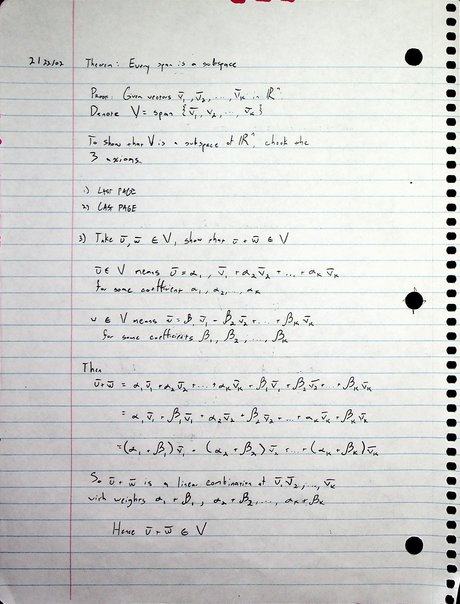 2/22/02 Theorem: Every span is a subspace
Proof: Given vectors v̄₁, v̄₂, ..., v̄ₖ in ℝⁿ.
Denote V = span {v̄₁, v₂, ..., v̄ₖ}
To show that V is a subspace of ℝⁿ, check the
3 axioms.
1) LAST PAGE
2) LAST PAGE
3) Take ū, w̄ ∈ V, show that ū + w̄ ∈ V
ū ∈ V means ū = α₁, v̄₁ + α₂v̄₂ + ... + αₖv̄ₖ
for some coefficient α₁, α₂, ..., αₖ
w ∈ V means w̄ = β₁v̄₁ + β₂v̄₂ + ... + βₖv̄ₖ
for some coefficients β₁, β₂, ..., βₖ
Then
ū+w̄ = α₁v̄₁ + α₂v̄₂ + ... + αₖv̄ₖ + β₁v̄₁ + β₂v̄₂ ... + βₖv̄ₖ
= α₁v̄₁ + β₁v̄₁ + α₂v̄₂ + β₂v̄₂ + ... + αₖv̄ₖ + βₖv̄ₖ
= (α₁ + β₁)v̄₁ + (α₂ + β₂)v̄₂ + ... + (αₖ + βₖ)v̄ₖ
So ū + w̄ is a linear combination of v̄₁, v̄₂, ..., v̄ₖ
with weights α₁ + β₁, α₂ + β₂, ..., αₖ + βₖ
Hence ū + w̄ ∈ V